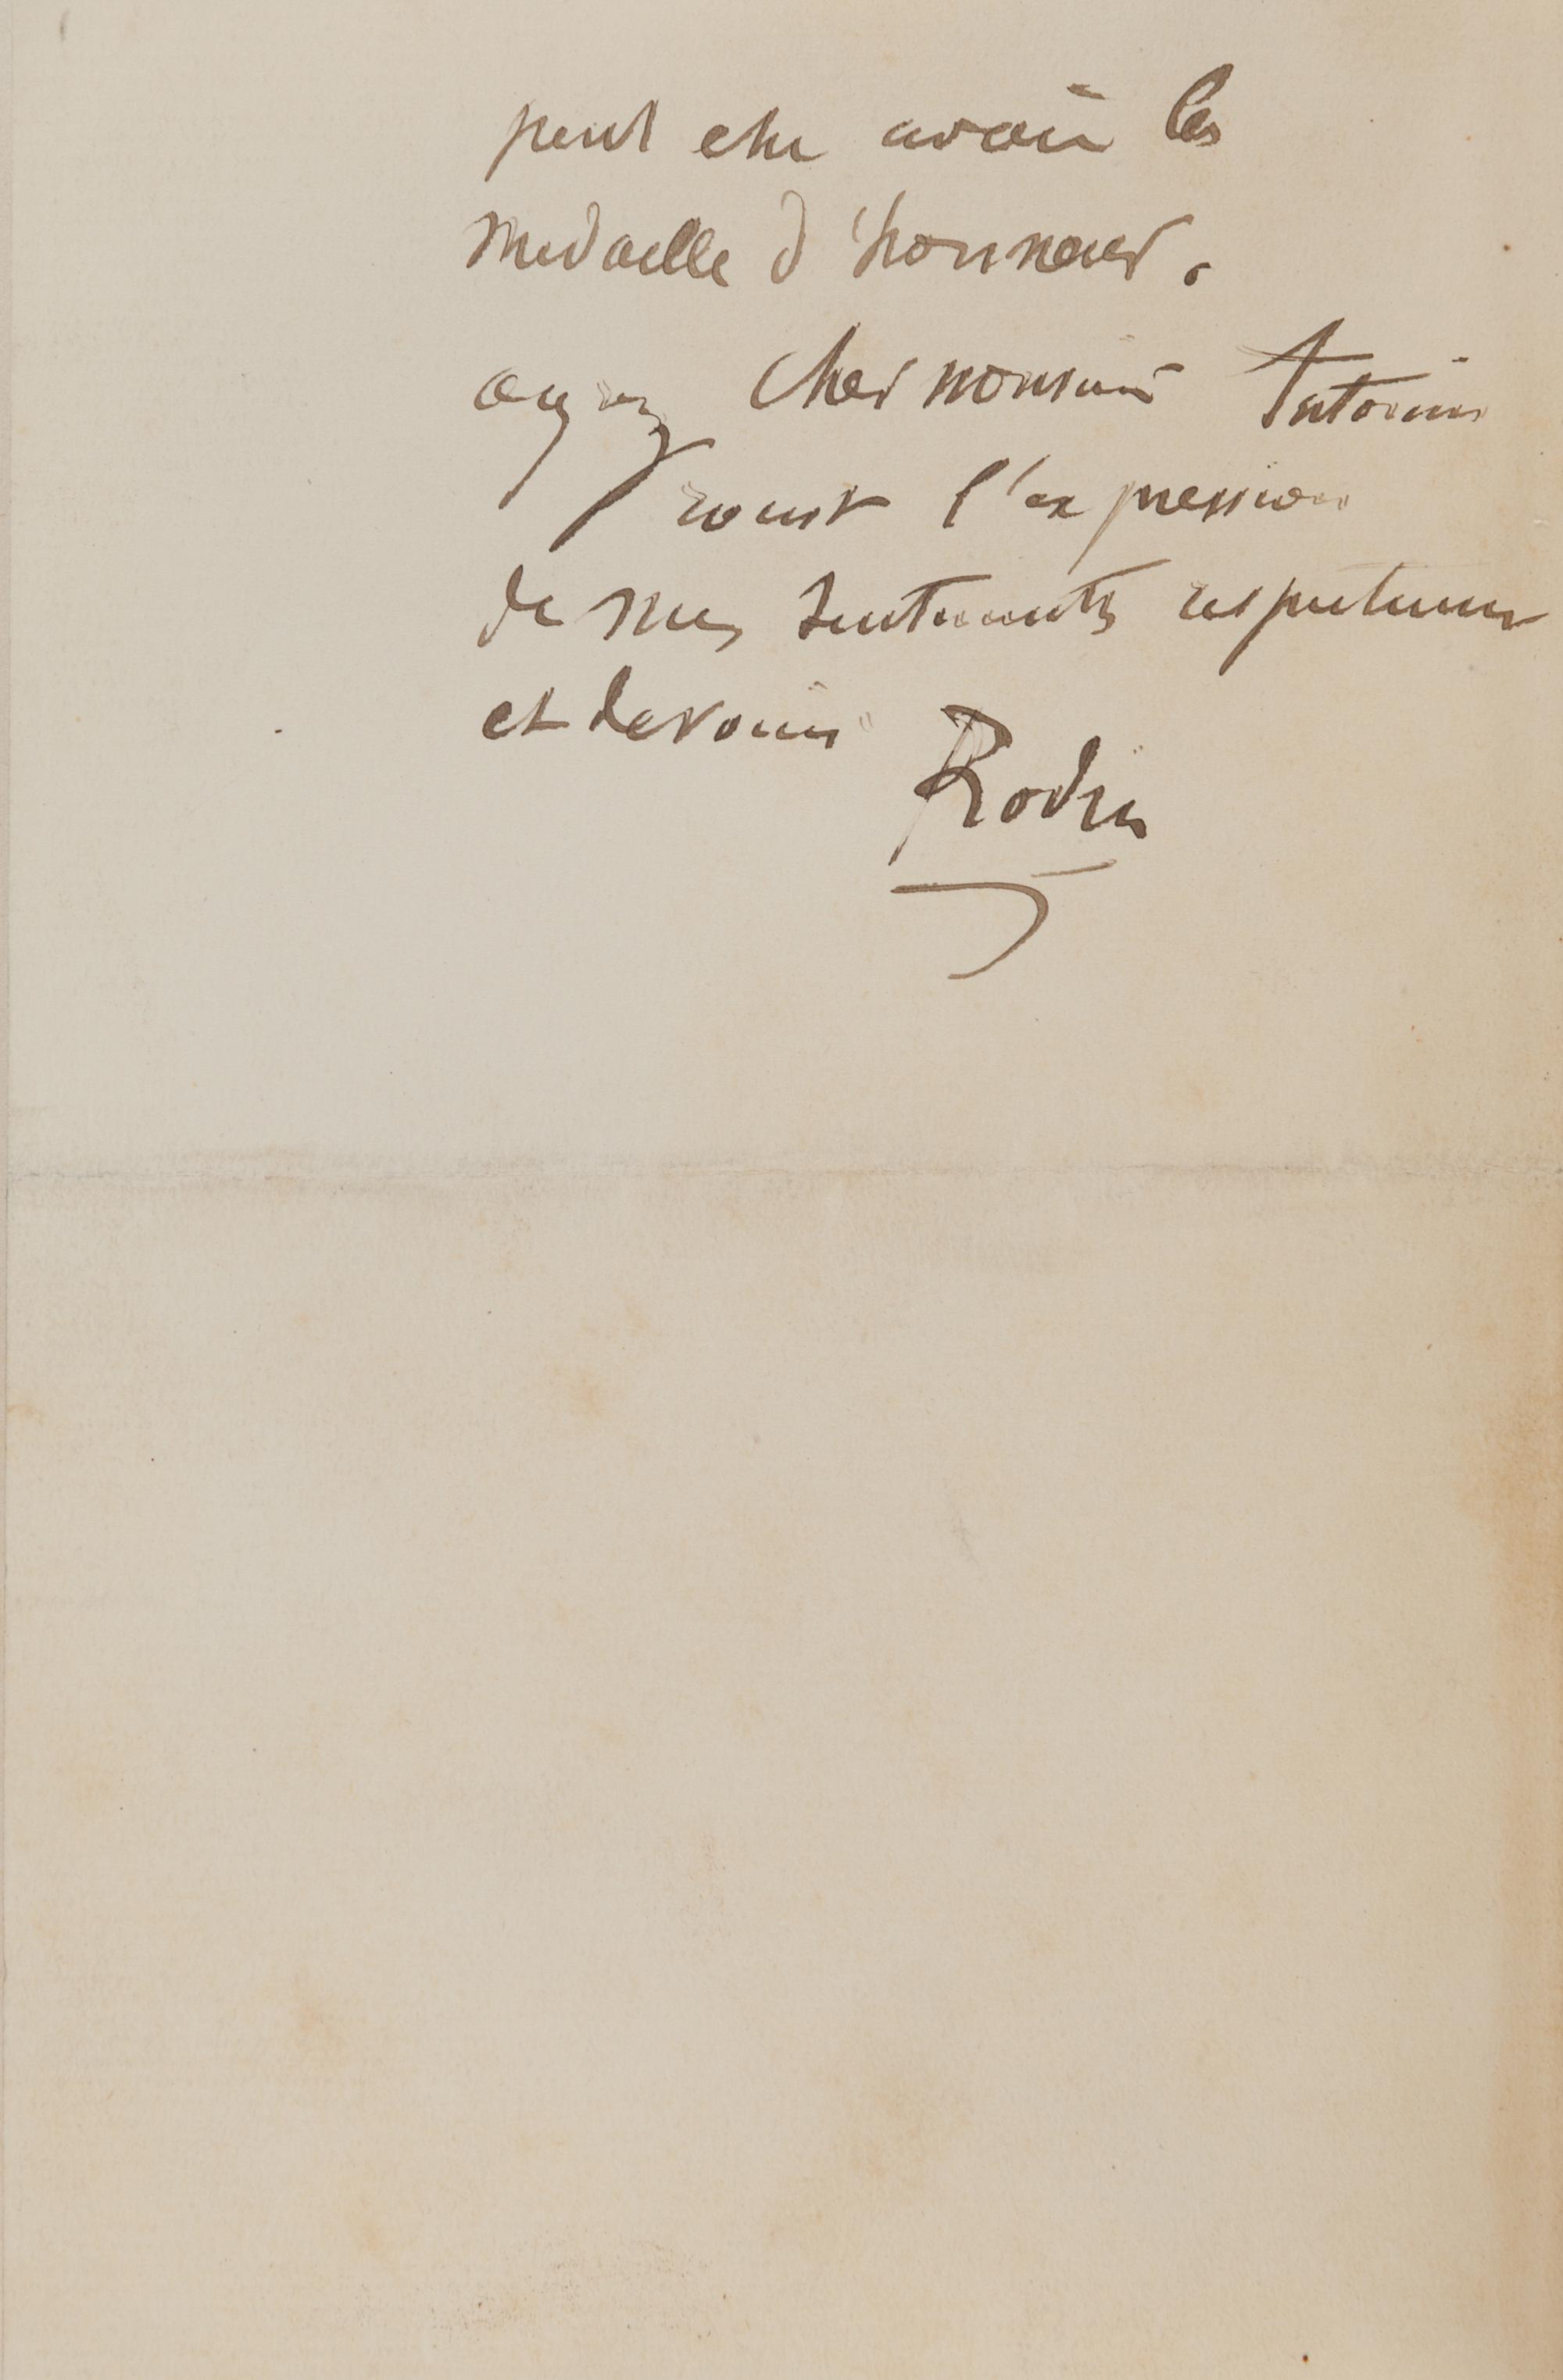 peut etre avoir les
medaille d'honneur.
agréez cher monsieur Antonin
Proust l'expression
de mes sentiments respectueux
et devoués
Rodin